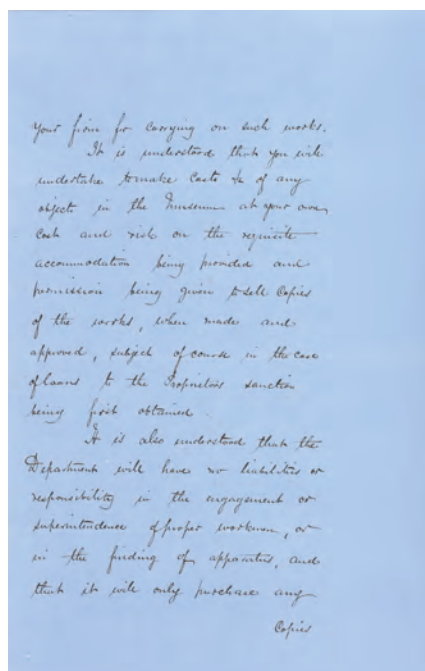 your firm for carrying on such works.
It is understood that you will
undertake to make Casts &c of any
objects in the Museum at your own
cost and risk on the requisite
accommodation being provided and
permission being given to sell Copies
of the works, when made and
approved, subject of course in the case
of loans to the Proprietors sanction
being first obtained.
It is also understood that the
Department will have no liabilities or
responsibility in the engagement or
superintendence of proper workmen, or
in the finding of apparatus, and
that it will only purchase any
Copies